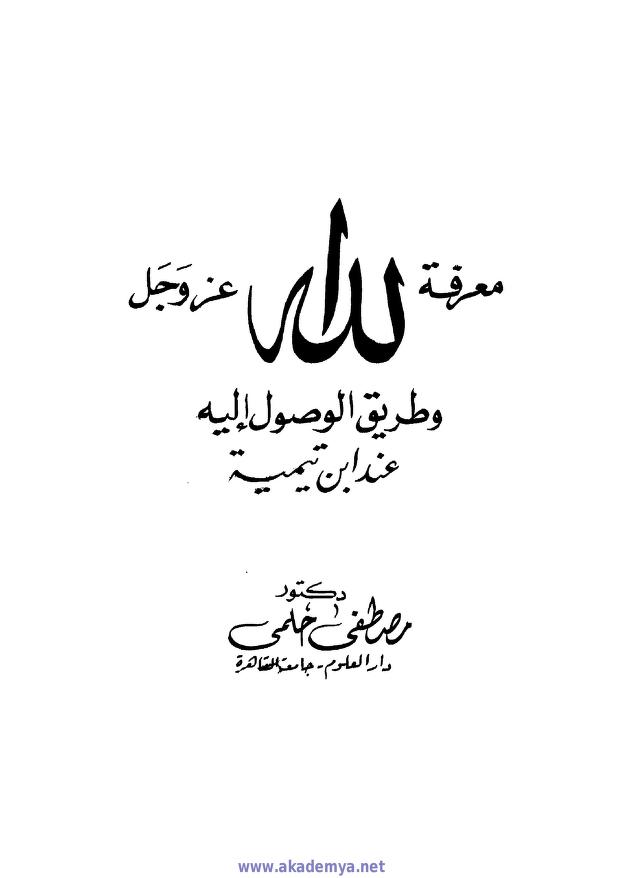 معرفة الله عز وَجَل
وطريق الوصول إليه
عند ابن تيمية
دكتور
مصطفى حلمى
دار العلوم - جامعة القاهرة
www.akademya.net